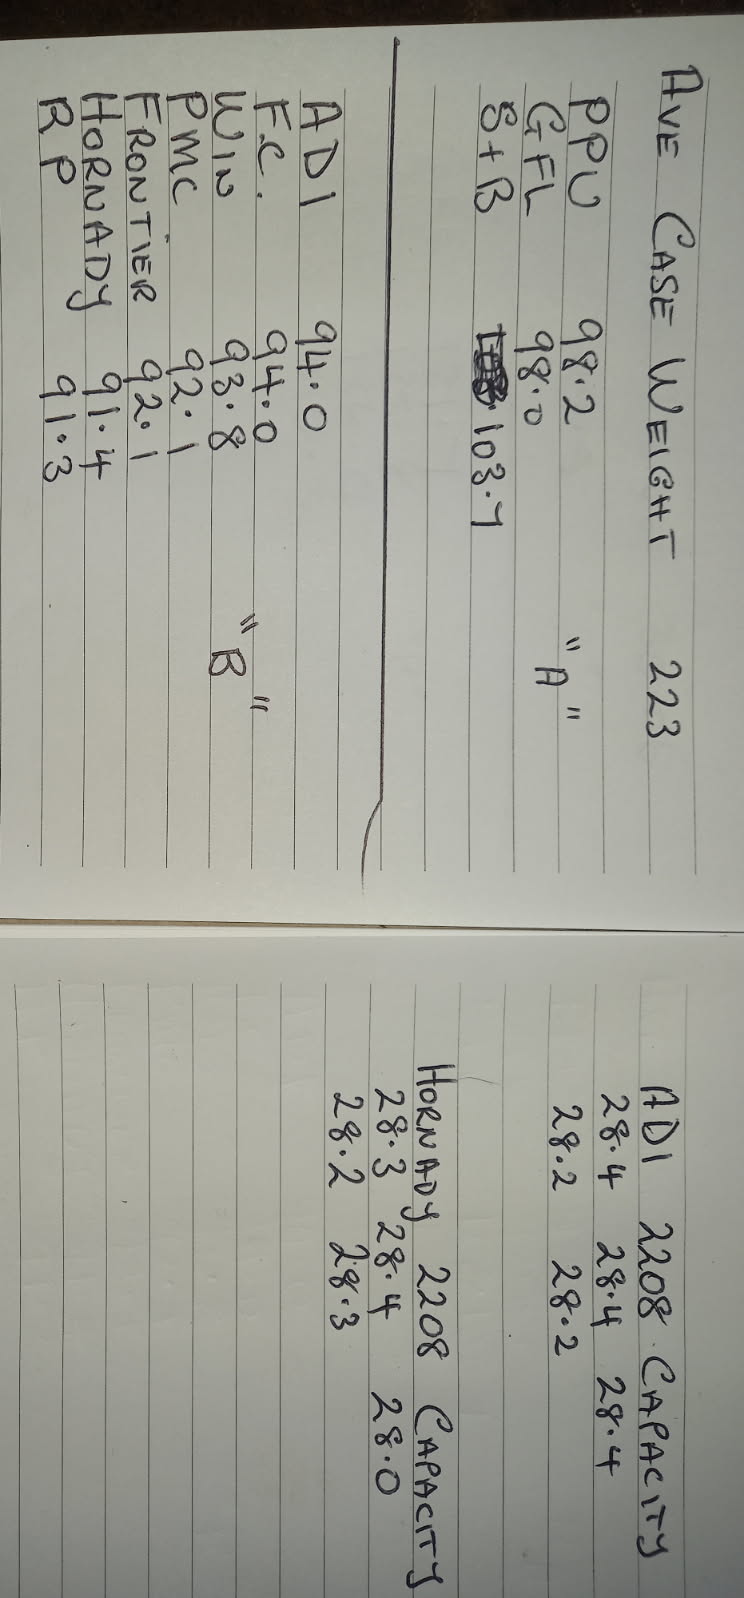 AVE CASE WEIGHT 223
PPU 98.2
GFL 98.0 "A"
S+B 103.7
ADI 94.0
F.C. 94.0
WIN 93.8 "B"
PMC 92.1
FRONTIER 92.1
HORNADY 91.4
RP 91.3
ADI 2208 CAPACITY
28.4 28.4 28.4
28.2 28.2
HORNADY 2208 CAPACITY
28.3 28.4 28.0
28.2 28.3